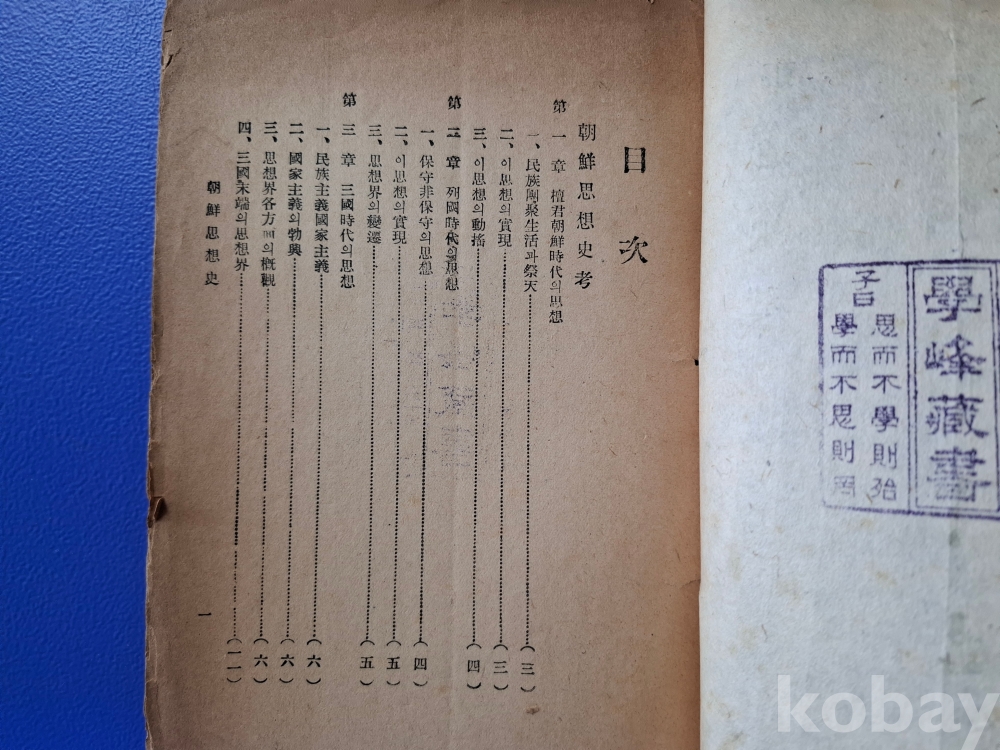 學峰藏書
思而不學則殆
子曰學而不思則罔
目次
朝鮮思想史考
第一章 檀君朝鮮時代의思想
一、民族團聚生活과祭天……(三)
二、이思想의實現……(三)
三、이思想의動搖……(四)
第二章 列國時代의思想
一、保守非保守의思想……(四)
二、이思想의實現……(五)
三、思想界의變遷……(五)
第三章 三國時代의思想
一、民族主義國家主義……(六)
二、國家主義의勃興……(六)
三、思想界各方面의槪觀……(六)
四、三國末端의思想界……(一一)
朝鮮思想史
一
kobay